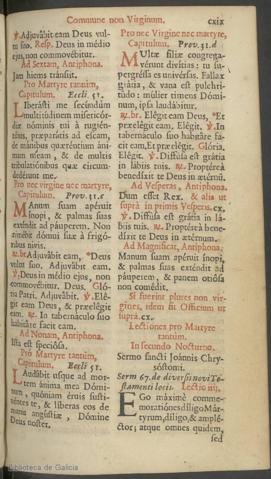 Commune non Virginum.
cxix
℣. Adjuvábit eam Deus vul-
tu suo. Resp. Deus in médio
ejus, non commovébitur.
Ad Sextam, Antiphona.
Jam hiems tránsiit.
Pro Martyre tantúm,
Capitulum. Eccli 51.
Liberásti me secúndùm
multitúdinem misericór-
diæ nóminis tui à rugién-
tibus, præparátis ad escam,
de mánibus quæréntium áni-
mam meam, & de multis
tribulatiónibus quæ circum-
dedérunt me.
Pro nec virgine nec martyre,
Capitulum. Prov. 31. c
Manum suam apéruit
ínopi, & palmas suas
exténdit ad páuperem. Non
timébit dómui suæ à frigó-
ribus nivis.
℟. br. Adjuvábit eam, * Deus
vultu suo. Adjuvábit eam.
℣. Deus in médio ejus, non
commovébitur. Deus. Gló-
ria Patri. Adjuvábit. ℣. Elé-
git eam Deus, & præelégit
eam. ℟. In tabernáculo suo
habitáre facit eam.
Ad Nonam, Antiphona.
Ista est speciósa.
Pro Martyre tantúm,
Capitulum. Eccli 51.
Laudábit usque ad mor-
tem ánima mea Dómi-
num, quóniam éruis susti-
néntes te, & líberas eos de
manu angústiæ, Dómine
Deus noster.
Pro nec Virgine nec martyre,
Capitulum. Prov. 31. d
Multæ fíliæ congrega-
vérunt divítias: tu su-
pergréssa es univérsas. Fallax
grátia, & vana est pulchri-
túdo: múlier timens Dómi-
num, ipsa laudábitur.
℟. br. Elégit eam Deus, * Et
præelégit eam. Elégit. ℣. In
tabernáculo suo habitáre fa-
cit eam. Et præelégit. Glória.
Elégit. ℣. Diffúsa est grátia
in lábiis tuis. ℟. Proptéreà
benedíxit te Deus in ætérnùm.
Ad Vesperas, Antiphona.
Dum esset Rex. & alia ut
suprà in primis Vesperis. cx.
℣. Diffúsa est grátia in lá-
biis tuis. ℟. Proptéreà bene-
díxit te Deus in ætérnum.
Ad Magnificat, Antiphona.
Manum suam apéruit ínopi,
& palmas suas exténdit ad
páuperem, & panem otiósa
non comédit.
Si fuerint plures non vir-
gines, idem fit Officium ut
suprà. cx.
Lectiones pro Martyre
tantùm.
In secundo Nocturno.
Sermo sancti Joannis Chry-
sóstomi.
Serm 67. de diversis novi Te-
stamenti locis. Lectio iiij.
Ego máximè comme-
moratiónes díligo Már-
tyrum, díligo, & ampléc-
tor; atque omnes quidem,
sed
Biblioteca de Galicia